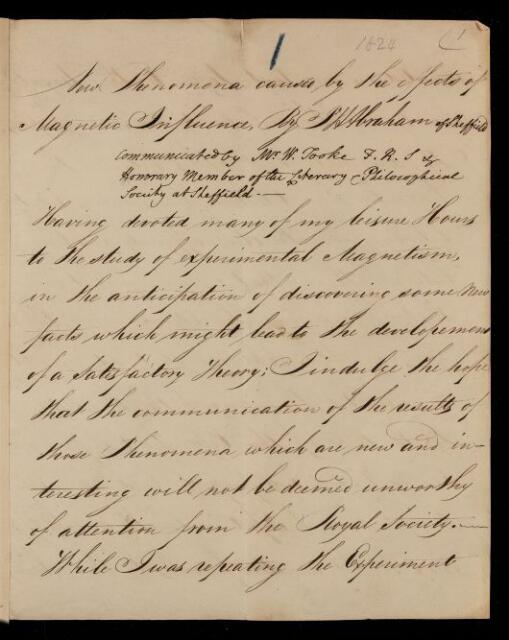 1
1824
1
New Phenomena caused by the effects of
Magnetic Influence, By J H Abraham of Sheffield
Communicated by Mr. W. Tooke F. R. S &
Honorary Member of the Literary & Philosophical
Society at Sheffield. —
Having devoted many of my leisure Hours
to the study of experimental Magnetism,
in the anticipation of discovering some New
facts which might lead to the developement
of a Satisfactory Theory; I indulge the hope
that the communication of the results of
those Phenomena which are new and in-
teresting will not be deemed unworthy
of attention from the Royal Society. —
While I was repeating the Experiment